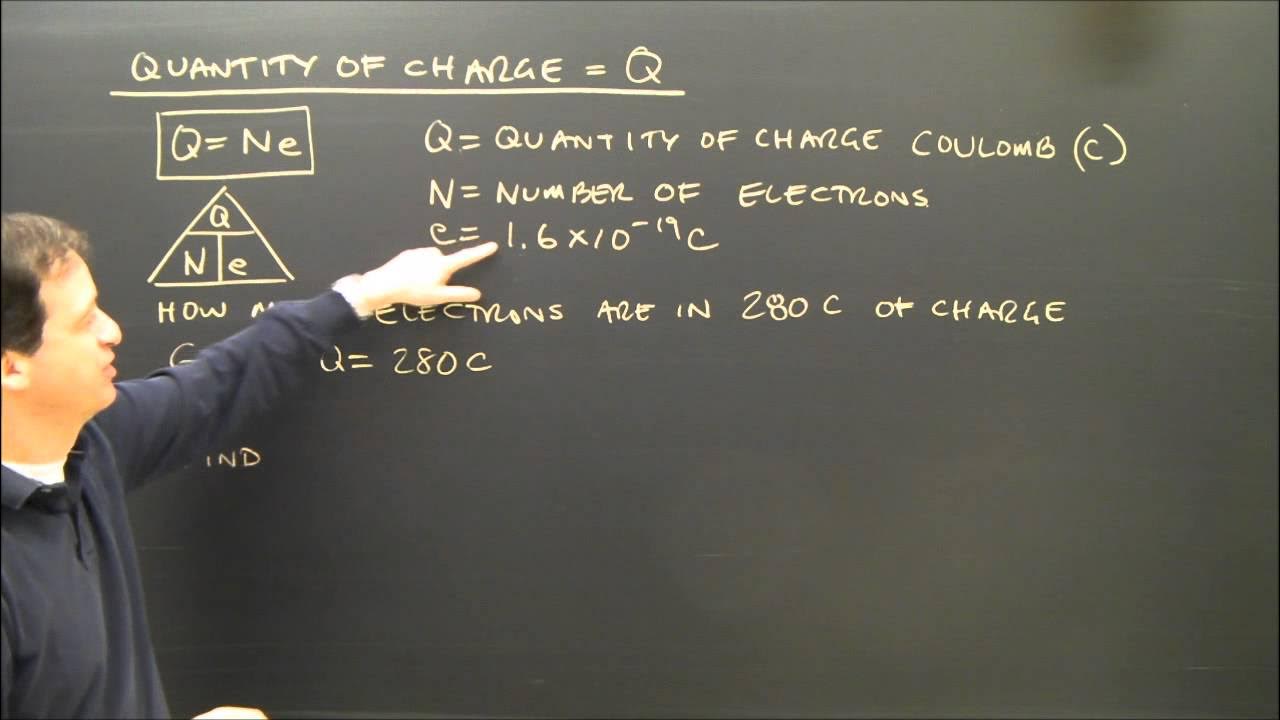 QUANTITY OF CHARGE = Q
Q = Ne
Q = QUANTITY OF CHARGE COULOMB (C)
N = NUMBER OF ELECTRONS
e = 1.6 × 10⁻¹⁹ C
Q
N e
HOW ELECTRONS ARE IN 280 C OF CHARGE
Q = 280 C
IND